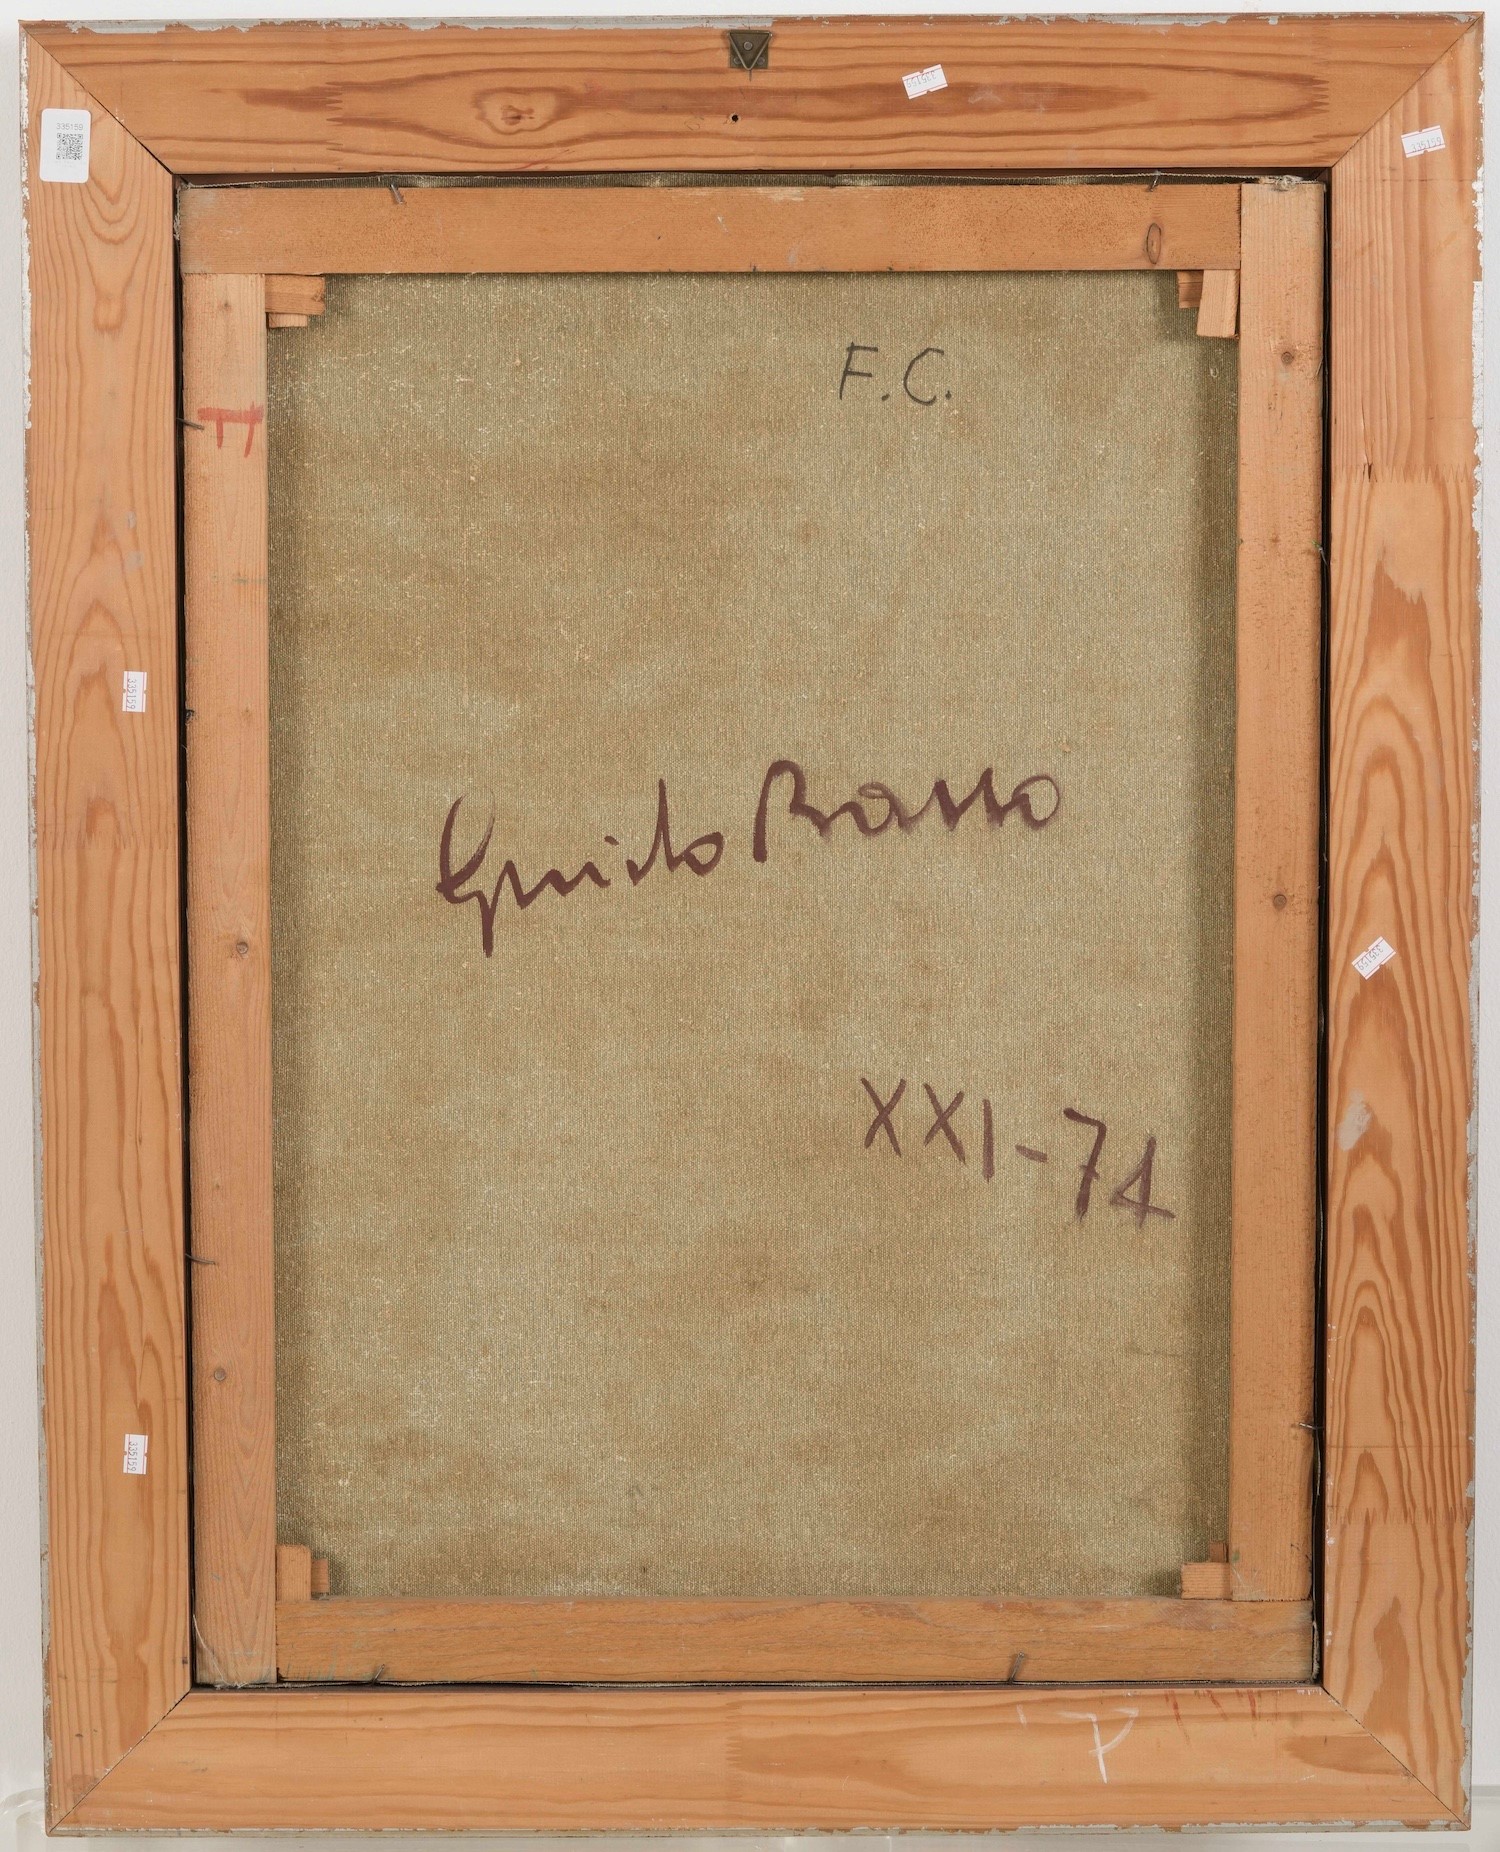 335159
335159
335159
F.C.
335159
Guido Basso
335159
XXI-74
335159